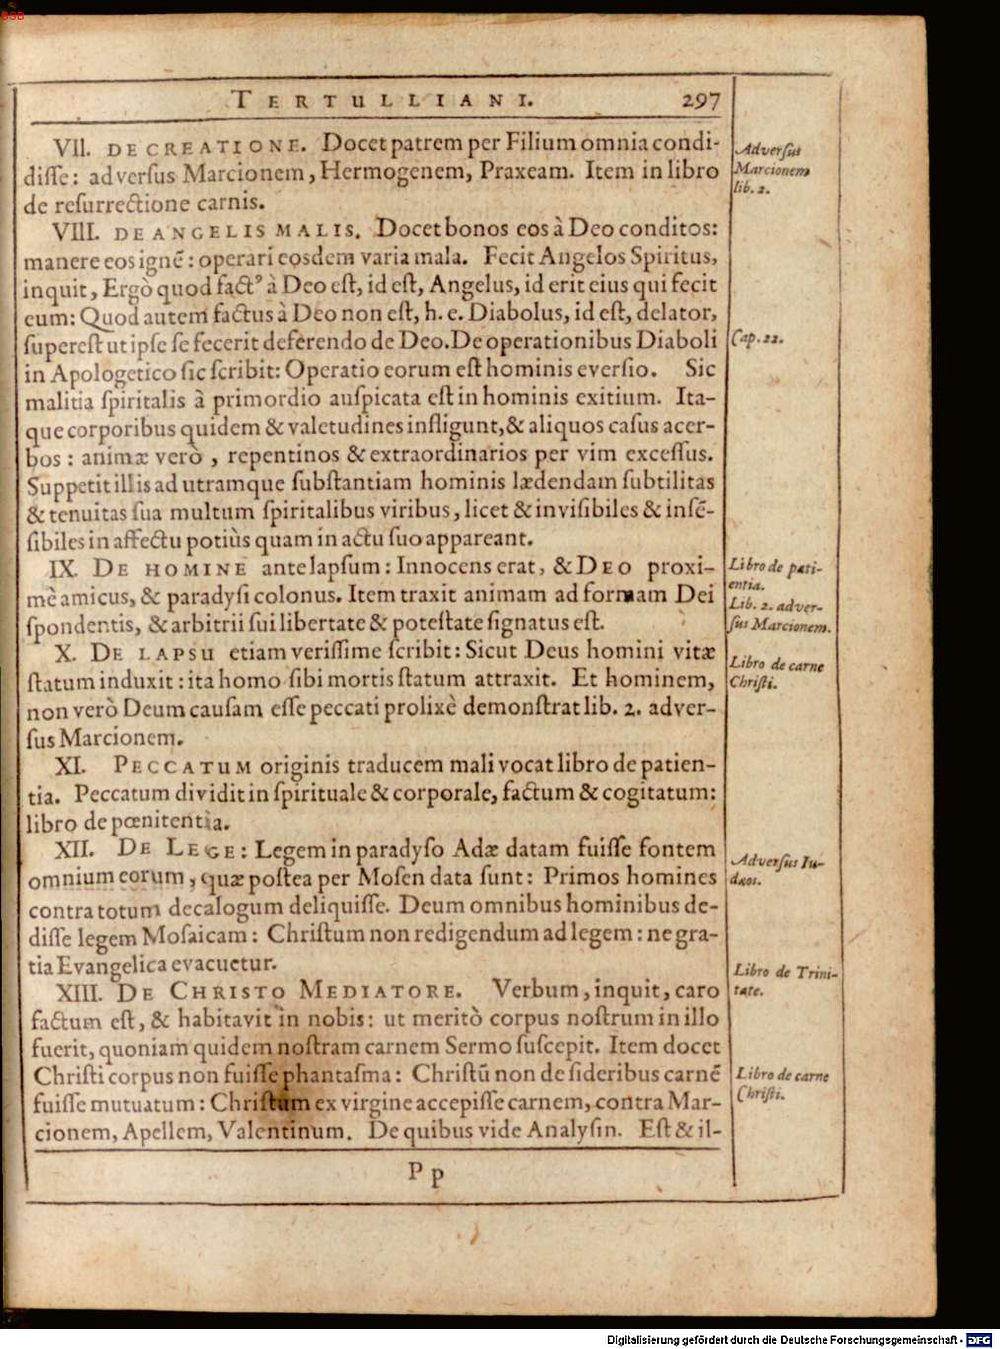 BSB
TERTULLIANI. 297
VII. DE CREATIONE. Docet patrem per Filium omnia condi-
disſe: adverſus Marcionem, Hermogenem, Praxeam. Item in libro
de reſurrectione carnis.
Adverſus
Marcionem
lib. 2.
VIII. DE ANGELIS MALIS. Docet bonos eos à Deo conditos:
manere eos ignē: operari eosdem varia mala. Fecit Angelos Spiritus,
inquit, Ergò quod factꝰ à Deo eſt, id eſt, Angelus, id erit eius qui fecit
eum: Quod autem factus à Deo non eſt, h. e. Diabolus, id eſt, delator,
ſupereſt ut ipſe ſe fecerit deferendo de Deo. De operationibus Diaboli
in Apologetico ſic ſcribit: Operatio eorum eſt hominis everſio. Sic
malitia ſpiritalis à primordio auſpicata eſt in hominis exitium. Ita-
que corporibus quidem & valetudines infligunt, & aliquos caſus acer-
bos: animæ verò, repentinos & extraordinarios per vim exceſſus.
Suppetit illis ad utramque ſubſtantiam hominis lædendam ſubtilitas
& tenuitas ſua multum ſpiritalibus viribus, licet & inviſibiles & inſē-
ſibiles in affectu potiùs quam in actu ſuo appareant.
Cap. 22.
IX. DE HOMINE ante lapſum: Innocens erat, & DEO proxi-
mè amicus, & paradyſi colonus. Item traxit animam ad formam Dei
ſpondentis, & arbitrii ſui libertate & poteſtate ſignatus eſt.
Libro de pati-
entia.
Lib. 2. adver-
ſus Marcionem.
X. DE LAPSU etiam veriſſime ſcribit: Sicut Deus homini vitæ
ſtatum induxit: ita homo ſibi mortis ſtatum attraxit. Et hominem,
non verò Deum cauſam eſſe peccati prolixè demonſtrat lib. 2. adver-
ſus Marcionem.
Libro de carne
Chriſti.
XI. PECCATUM originis traducem mali vocat libro de patien-
tia. Peccatum dividit in ſpirituale & corporale, factum & cogitatum:
libro de pœnitentia.
XII. DE LEGE: Legem in paradyſo Adæ datam fuiſſe fontem
omnium eorum, quæ poſtea per Moſen data ſunt: Primos homines
contra totum decalogum deliquiſſe. Deum omnibus hominibus de-
diſſe legem Moſaicam: Chriſtum non redigendum ad legem: ne gra-
tia Evangelica evacuetur.
Adverſus Iu-
dæos.
XIII. DE CHRISTO MEDIATORE. Verbum, inquit, caro
factum eſt, & habitavit in nobis: ut meritò corpus noſtrum in illo
fuerit, quoniam quidem noſtram carnem Sermo ſuſcepit. Item docet
Chriſti corpus non fuiſſe phantaſma: Chriſtū non de ſideribus carnē
fuiſſe mutuatum: Chriſtum ex virgine accepiſſe carnem, contra Mar-
cionem, Apellem, Valentinum. De quibus vide Analyſin. Eſt & il-
Libro de Trini-
tate.
Libro de carne
Chriſti.
P p
Digitalisierung gefördert durch die Deutsche Forschungsgemeinschaft - DFG